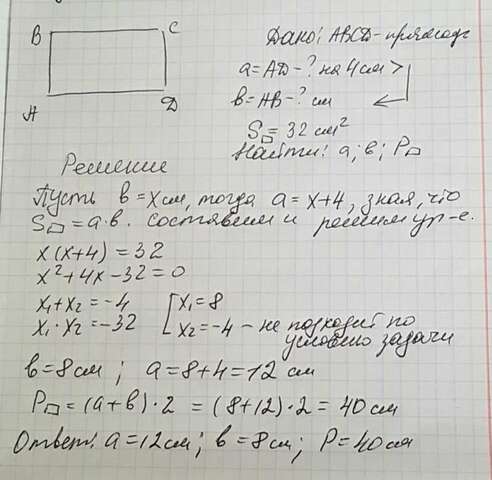 B C
A D
Дано: ABCD - прямоуг
a = AD - ? на 4 см >
b = AB - ? см
S▭ = 32 см²
Найти: a; b; P▭
Решение
Пусть b = x см, тогда a = x+4, зная, что
S▭ = a·b. составим и решим ур-е.
x(x+4) = 32
x² + 4x - 32 = 0
x₁ + x₂ = -4 [x₁ = 8
x₁ · x₂ = -32 x₂ = -4 - не подходит по
условию задачи
b = 8 см ; a = 8+4 = 12 см
P▭ = (a+b)·2 = (8+12)·2 = 40 см
Ответ: a = 12 см ; b = 8 см ; P = 40 см